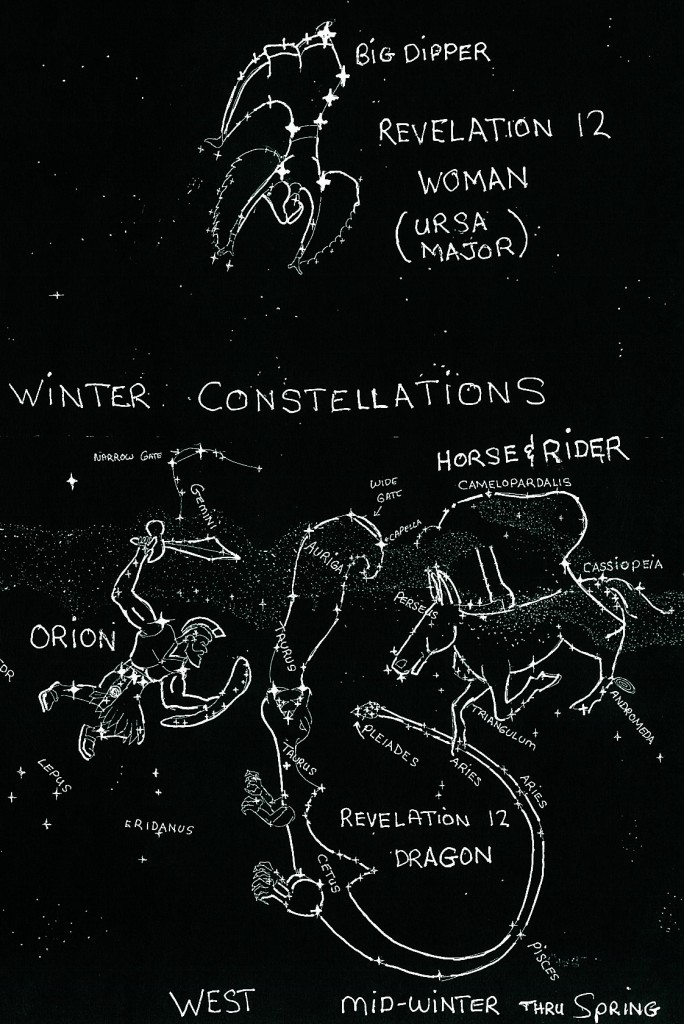 BIG DIPPER
REVELATION 12
WOMAN
(URSA
MAJOR)
WINTER CONSTELLATIONS
NARROW GATE
GEMINI
HORSE & RIDER
CAMELOPARDALIS
WIDE
GATE
CAPELLA
AURIGA
CASSIOPEIA
PERSEUS
ORION
TAURUS
ANDROMEDA
TRIANGULUM
PLEIADES
ARIES
ARIES
TAURUS
LEPUS
ERIDANUS
REVELATION 12
DRAGON
CETUS
PISCES
WEST
MID-WINTER THRU SPRING